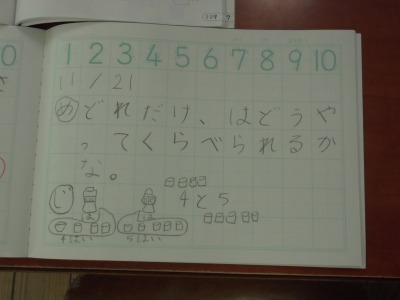 1 2 3 4 5 6 7 8 9 10
11/21
め どれだけ、はどうや
ってくらべられるか
な。
じ
4と5
4はい 5はい